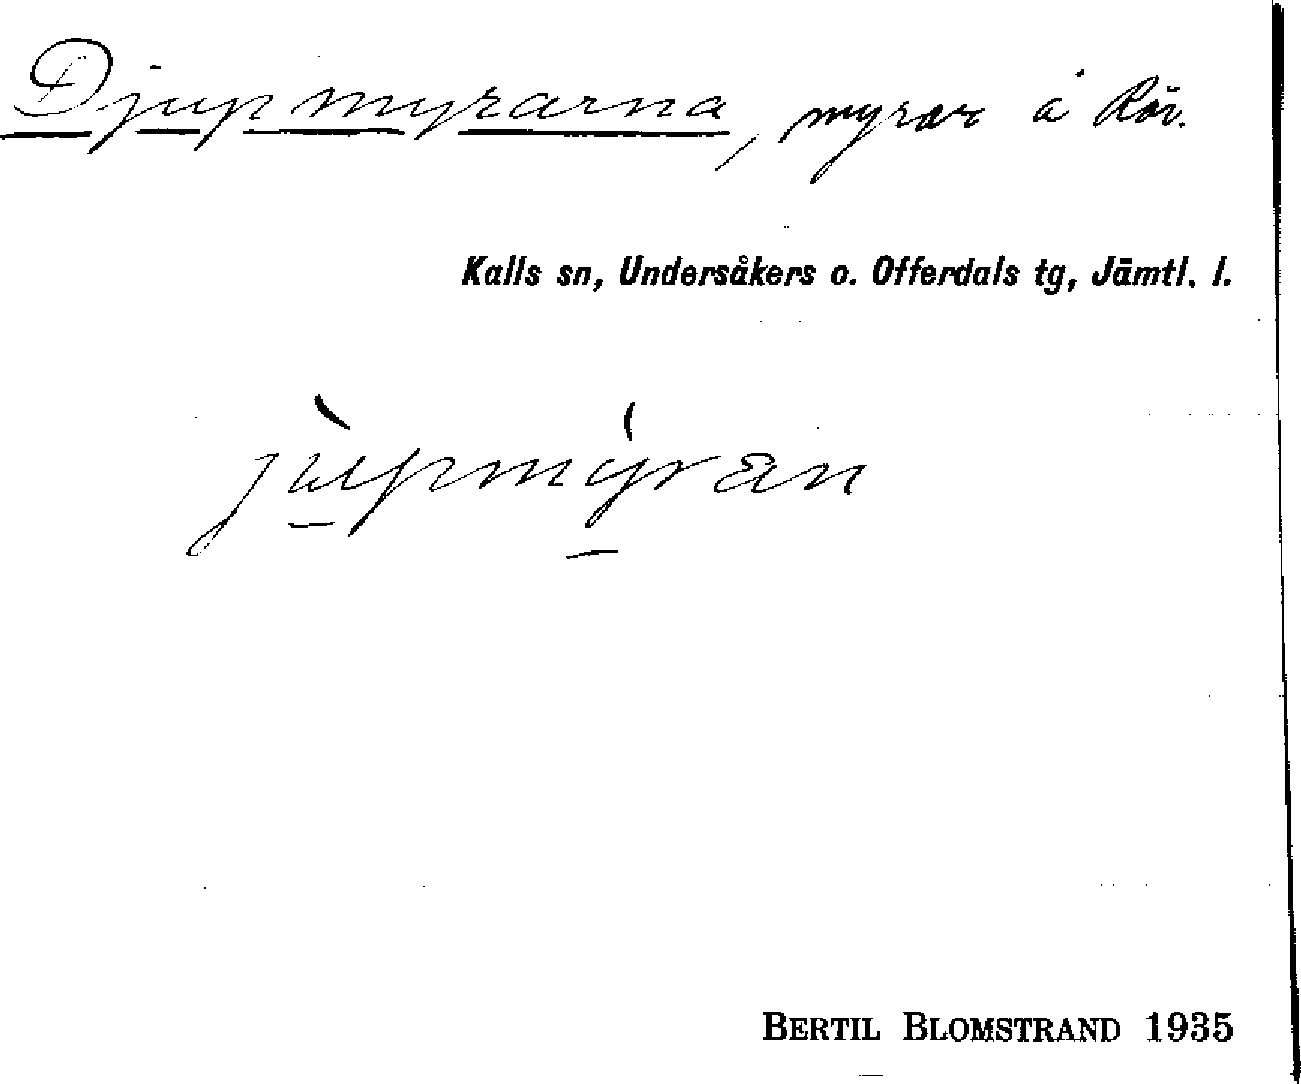 Djupmyrarna, myrar å Rör.
Kalls sn, Undersåkers o. Offerdals tg, Jämtl. l.
jùpmýran
BERTIL BLOMSTRAND 1935